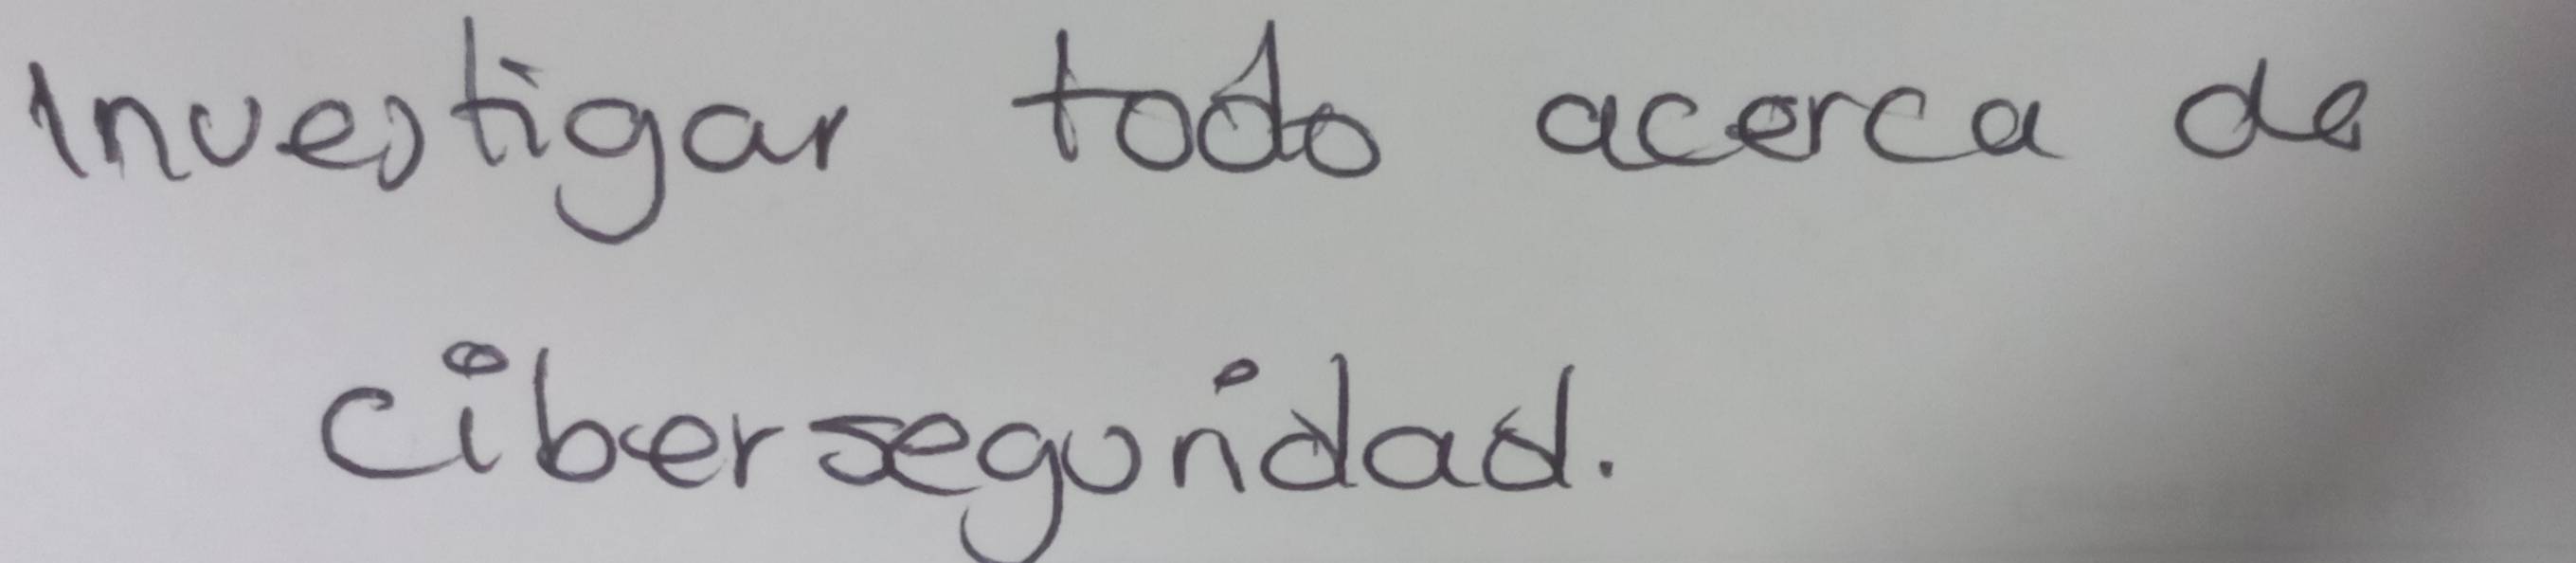 Investigar todo acerca de
ciberseguridad.